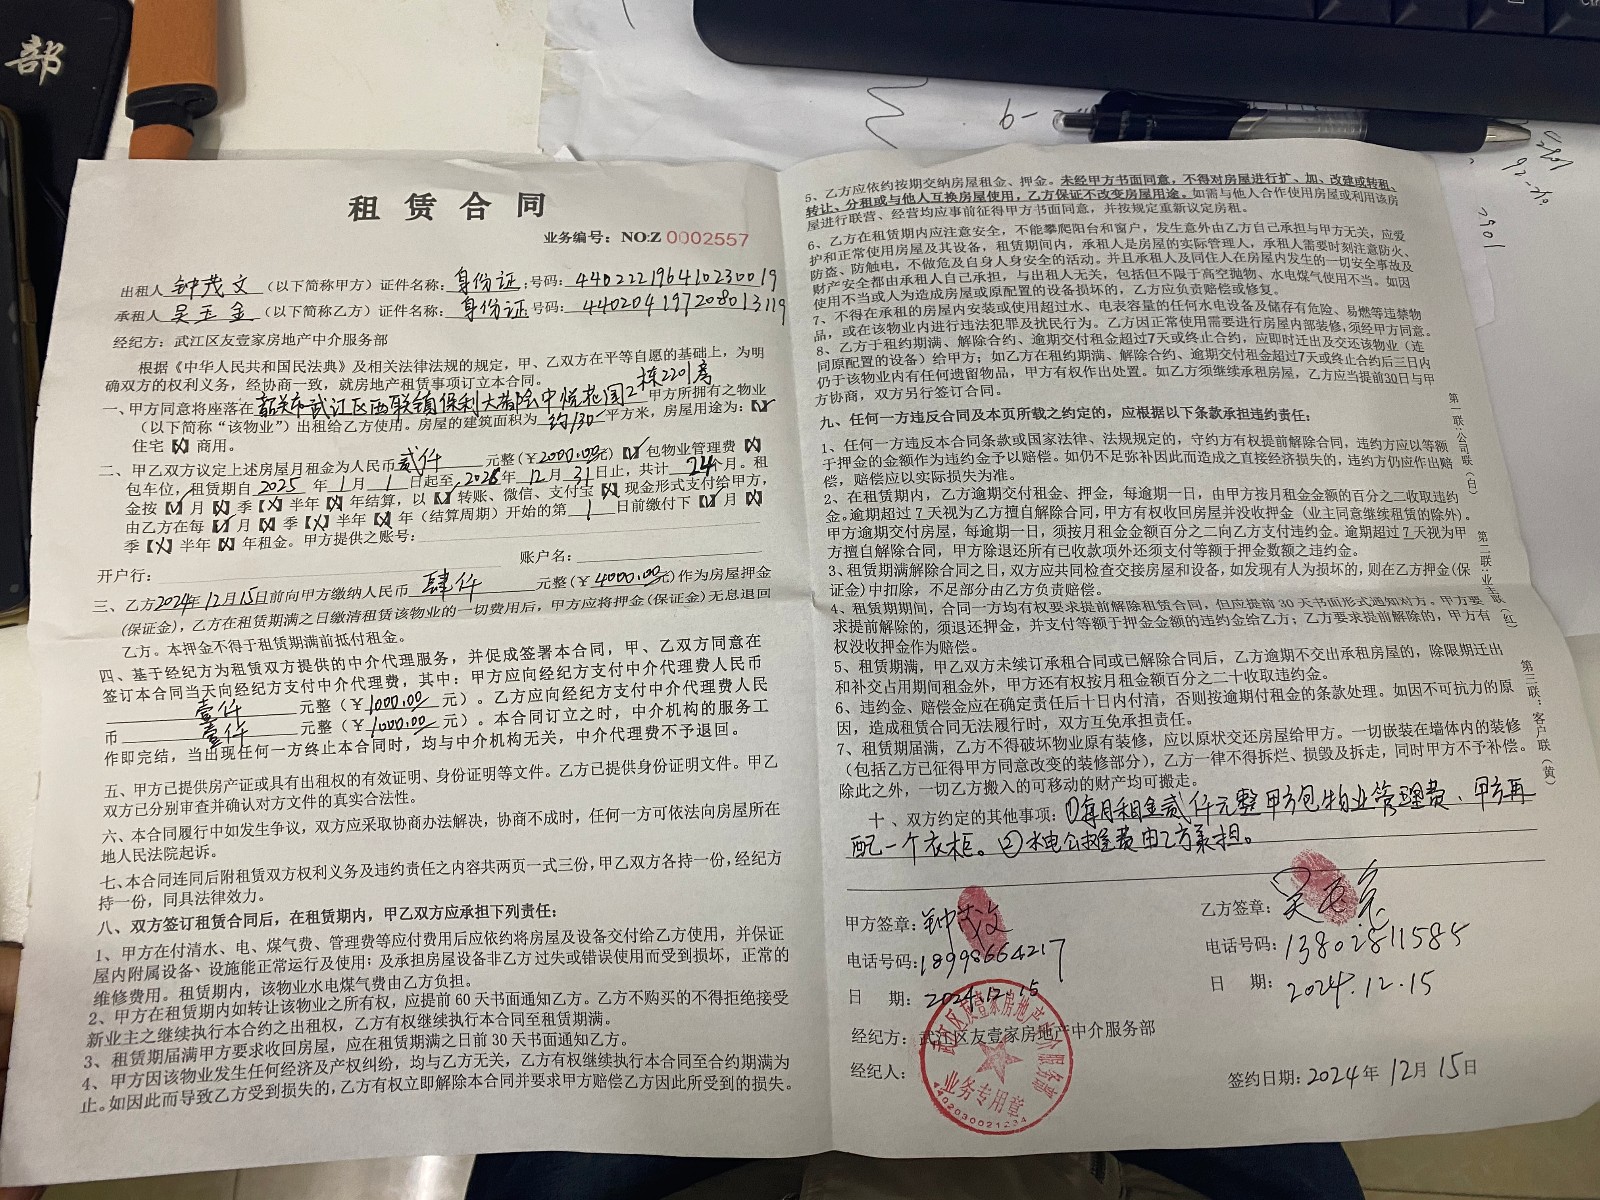 部
租赁合同
业务编号：NO:Z 0002557
出租人 钟茂文（以下简称甲方）证件名称：身份证；号码：440222196410230019
承租人 吴玉金（以下简称乙方）证件名称：身份证 号码：440204197208013119
经纪方：武江区友壹家房地产中介服务部
根据《中华人民共和国民法典》及相关法律法规的规定，甲、乙双方在平等自愿的基础上，为明
确双方的权利义务，经协商一致，就房地产租赁事项订立本合同。
一、甲方同意将座落在 韶关市武江区西联镇保利大都会中悦花园2栋2201房 甲方所拥有之物业
（以下简称“该物业”）出租给乙方使用。房屋的建筑面积为 约130 平方米，房屋用途为：【✓】
住宅【X】商用。
二、甲乙双方议定上述房屋月租金为人民币 贰仟 元整（￥2000.00元）【✓】包物业管理费【X】
包车位，租赁期自 2025 年 1 月 1 日起至 2026 年 12 月 31 日止，共计 24 个月。租
金按【✓】月【X】季【X】半年【X】年结算，以【✓】转账、微信、支付宝【X】现金形式支付给甲方，
由乙方在每【✓】月【X】季【X】半年【X】年（结算周期）开始的第 1 日前缴付下【✓】月【X】
季【X】半年【X】年租金。甲方提供之账号：
开户行： 账户名：
三、乙方2024年12月15日前向甲方缴纳人民币 肆仟 元整（￥4000.00元）作为房屋押金
(保证金)，乙方在租赁期满之日缴清租赁该物业的一切费用后，甲方应将押金(保证金)无息退回
乙方。本押金不得于租赁期满前抵付租金。
四、基于经纪方为租赁双方提供的中介代理服务，并促成签署本合同，甲、乙双方同意在
签订本合同当天向经纪方支付中介代理费，其中：甲方应向经纪方支付中介代理费人民币
壹仟 元整（￥1000.00 元）。乙方应向经纪方支付中介代理费人民
币 壹仟 元整（￥1000.00 元）。本合同订立之时，中介机构的服务工
作即完结，当出现任何一方终止本合同时，均与中介机构无关，中介代理费不予退回。
五、甲方已提供房产证或具有出租权的有效证明、身份证明等文件。乙方已提供身份证明文件。甲乙
双方已分别审查并确认对方文件的真实合法性。
六、本合同履行中如发生争议，双方应采取协商办法解决，协商不成时，任何一方可依法向房屋所在
地人民法院起诉。
七、本合同连同后附租赁双方权利义务及违约责任之内容共两页一式三份，甲乙双方各持一份，经纪方
持一份，同具法律效力。
八、双方签订租赁合同后，在租赁期内，甲乙双方应承担下列责任：
1、甲方在付清水、电、煤气费、管理费等应付费用后应依约将房屋及设备交付给乙方使用，并保证
屋内附属设备、设施能正常运行及使用；及承担房屋设备非乙方过失或错误使用而受到损坏，正常的
维修费用。租赁期内，该物业水电煤气费由乙方负担。
2、甲方在租赁期内如转让该物业之所有权，应提前 60 天书面通知乙方。乙方不购买的不得拒绝接受
新业主之继续执行本合约之出租权，乙方有权继续执行本合同至租赁期满。
3、租赁期届满甲方要求收回房屋，应在租赁期满之日前 30 天书面通知乙方。
4、甲方因该物业发生任何经济及产权纠纷，均与乙方无关，乙方有权继续执行本合同至合约期满为
止。如因此而导致乙方受到损失的，乙方有权立即解除本合同并要求甲方赔偿乙方因此所受到的损失。
5、乙方应依约按期交纳房屋租金、押金。未经甲方书面同意，不得对房屋进行扩、加、改建或转租、
转让、分租或与他人互换房屋使用，乙方保证不改变房屋用途。如需与他人合作使用房屋或利用该房
屋进行联营、经营均应事前征得甲方书面同意，并按规定重新议定房租。
6、乙方在租赁期内应注意安全，不能攀爬阳台和窗户，发生意外由乙方自己承担与甲方无关，应爱
护和正常使用房屋及其设备，租赁期间内，承租人是房屋的实际管理人，承租人需要时刻注意防火、
防盗、防触电，不做危及自身人身安全的活动。并且承租人及同住人在房屋内发生的一切安全事故及
财产安全都由承租人自己承担，与出租人无关，包括但不限于高空抛物、水电煤气使用不当。如因
使用不当或人为造成房屋或原配置的设备损坏的，乙方应负责赔偿或修复。
7、不得在承租的房屋内安装或使用超过水、电表容量的任何水电设备及储存有危险、易燃等违禁物
品，或在该物业内进行违法犯罪及扰民行为。乙方因正常使用需要进行房屋内部装修，须经甲方同意。
8、乙方于租约期满、解除合约、逾期交付租金超过7天或终止合约，应即时迁出及交还该物业（连
同原配置的设备）给甲方；如乙方在租约期满、解除合约、逾期交付租金超过7天或终止合约后三日内
仍于该物业内有任何遗留物品，甲方有权作出处置。如乙方须继续承租房屋，乙方应当提前30日与甲
方协商，双方另行签订合同。
九、任何一方违反合同及本页所载之约定的，应根据以下条款承担违约责任：
1、任何一方违反本合同条款或国家法律、法规规定的，守约方有权提前解除合同，违约方应以等额
于押金的金额作为违约金予以赔偿。如仍不足弥补因此而造成之直接经济损失的，违约方仍应作出赔
偿，赔偿应以实际损失为准。
2、在租赁期内，乙方逾期交付租金、押金，每逾期一日，由甲方按月租金金额的百分之二收取违约
金。逾期超过 7 天视为乙方擅自解除合同，甲方有权收回房屋并没收押金（业主同意继续租赁的除外）。
甲方逾期交付房屋，每逾期一日，须按月租金金额百分之二向乙方支付违约金。逾期超过 7 天视为甲
方擅自解除合同，甲方除退还所有已收款项外还须支付等额于押金数额之违约金。
3、租赁期满解除合同之日，双方应共同检查交接房屋和设备，如发现有人为损坏的，则在乙方押金(保
证金)中扣除，不足部分由乙方负责赔偿。
4、租赁期期间，合同一方均有权要求提前解除租赁合同，但应提前 30 天书面形式通知对方。甲方要
求提前解除的，须退还押金，并支付等额于押金金额的违约金给乙方；乙方要求提前解除的，甲方有
权没收押金作为赔偿。
5、租赁期满，甲乙双方未续订承租合同或已解除合同后，乙方逾期不交出承租房屋的，除限期迁出
和补交占用期间租金外，甲方还有权按月租金额百分之二十收取违约金。
6、违约金、赔偿金应在确定责任后十日内付清，否则按逾期付租金的条款处理。如因不可抗力的原
因，造成租赁合同无法履行时，双方互免承担责任。
7、租赁期届满，乙方不得破坏物业原有装修，应以原状交还房屋给甲方。一切嵌装在墙体内的装修
（包括乙方已征得甲方同意改变的装修部分），乙方一律不得拆烂、损毁及拆走，同时甲方不予补偿。
除此之外，一切乙方搬入的可移动的财产均可搬走。
十、双方约定的其他事项：①每月租金贰仟元整甲方包物业管理费、甲方再
配一个衣柜。②水电公摊费由乙方承担。
第一联：公司联（白）
第二联：业主联（红）
第三联：客户联（黄）
甲方签章：钟茂文
电话号码：18998664217
日 期：2024.12.15
乙方签章：吴玉金
电话号码：13802811585
日 期：2024.12.15
经纪方：武江区友壹家房地产中介服务部
经纪人：
武江区友壹家房地产中介服务部
业务专用章
签约日期：2024年 12月 15日